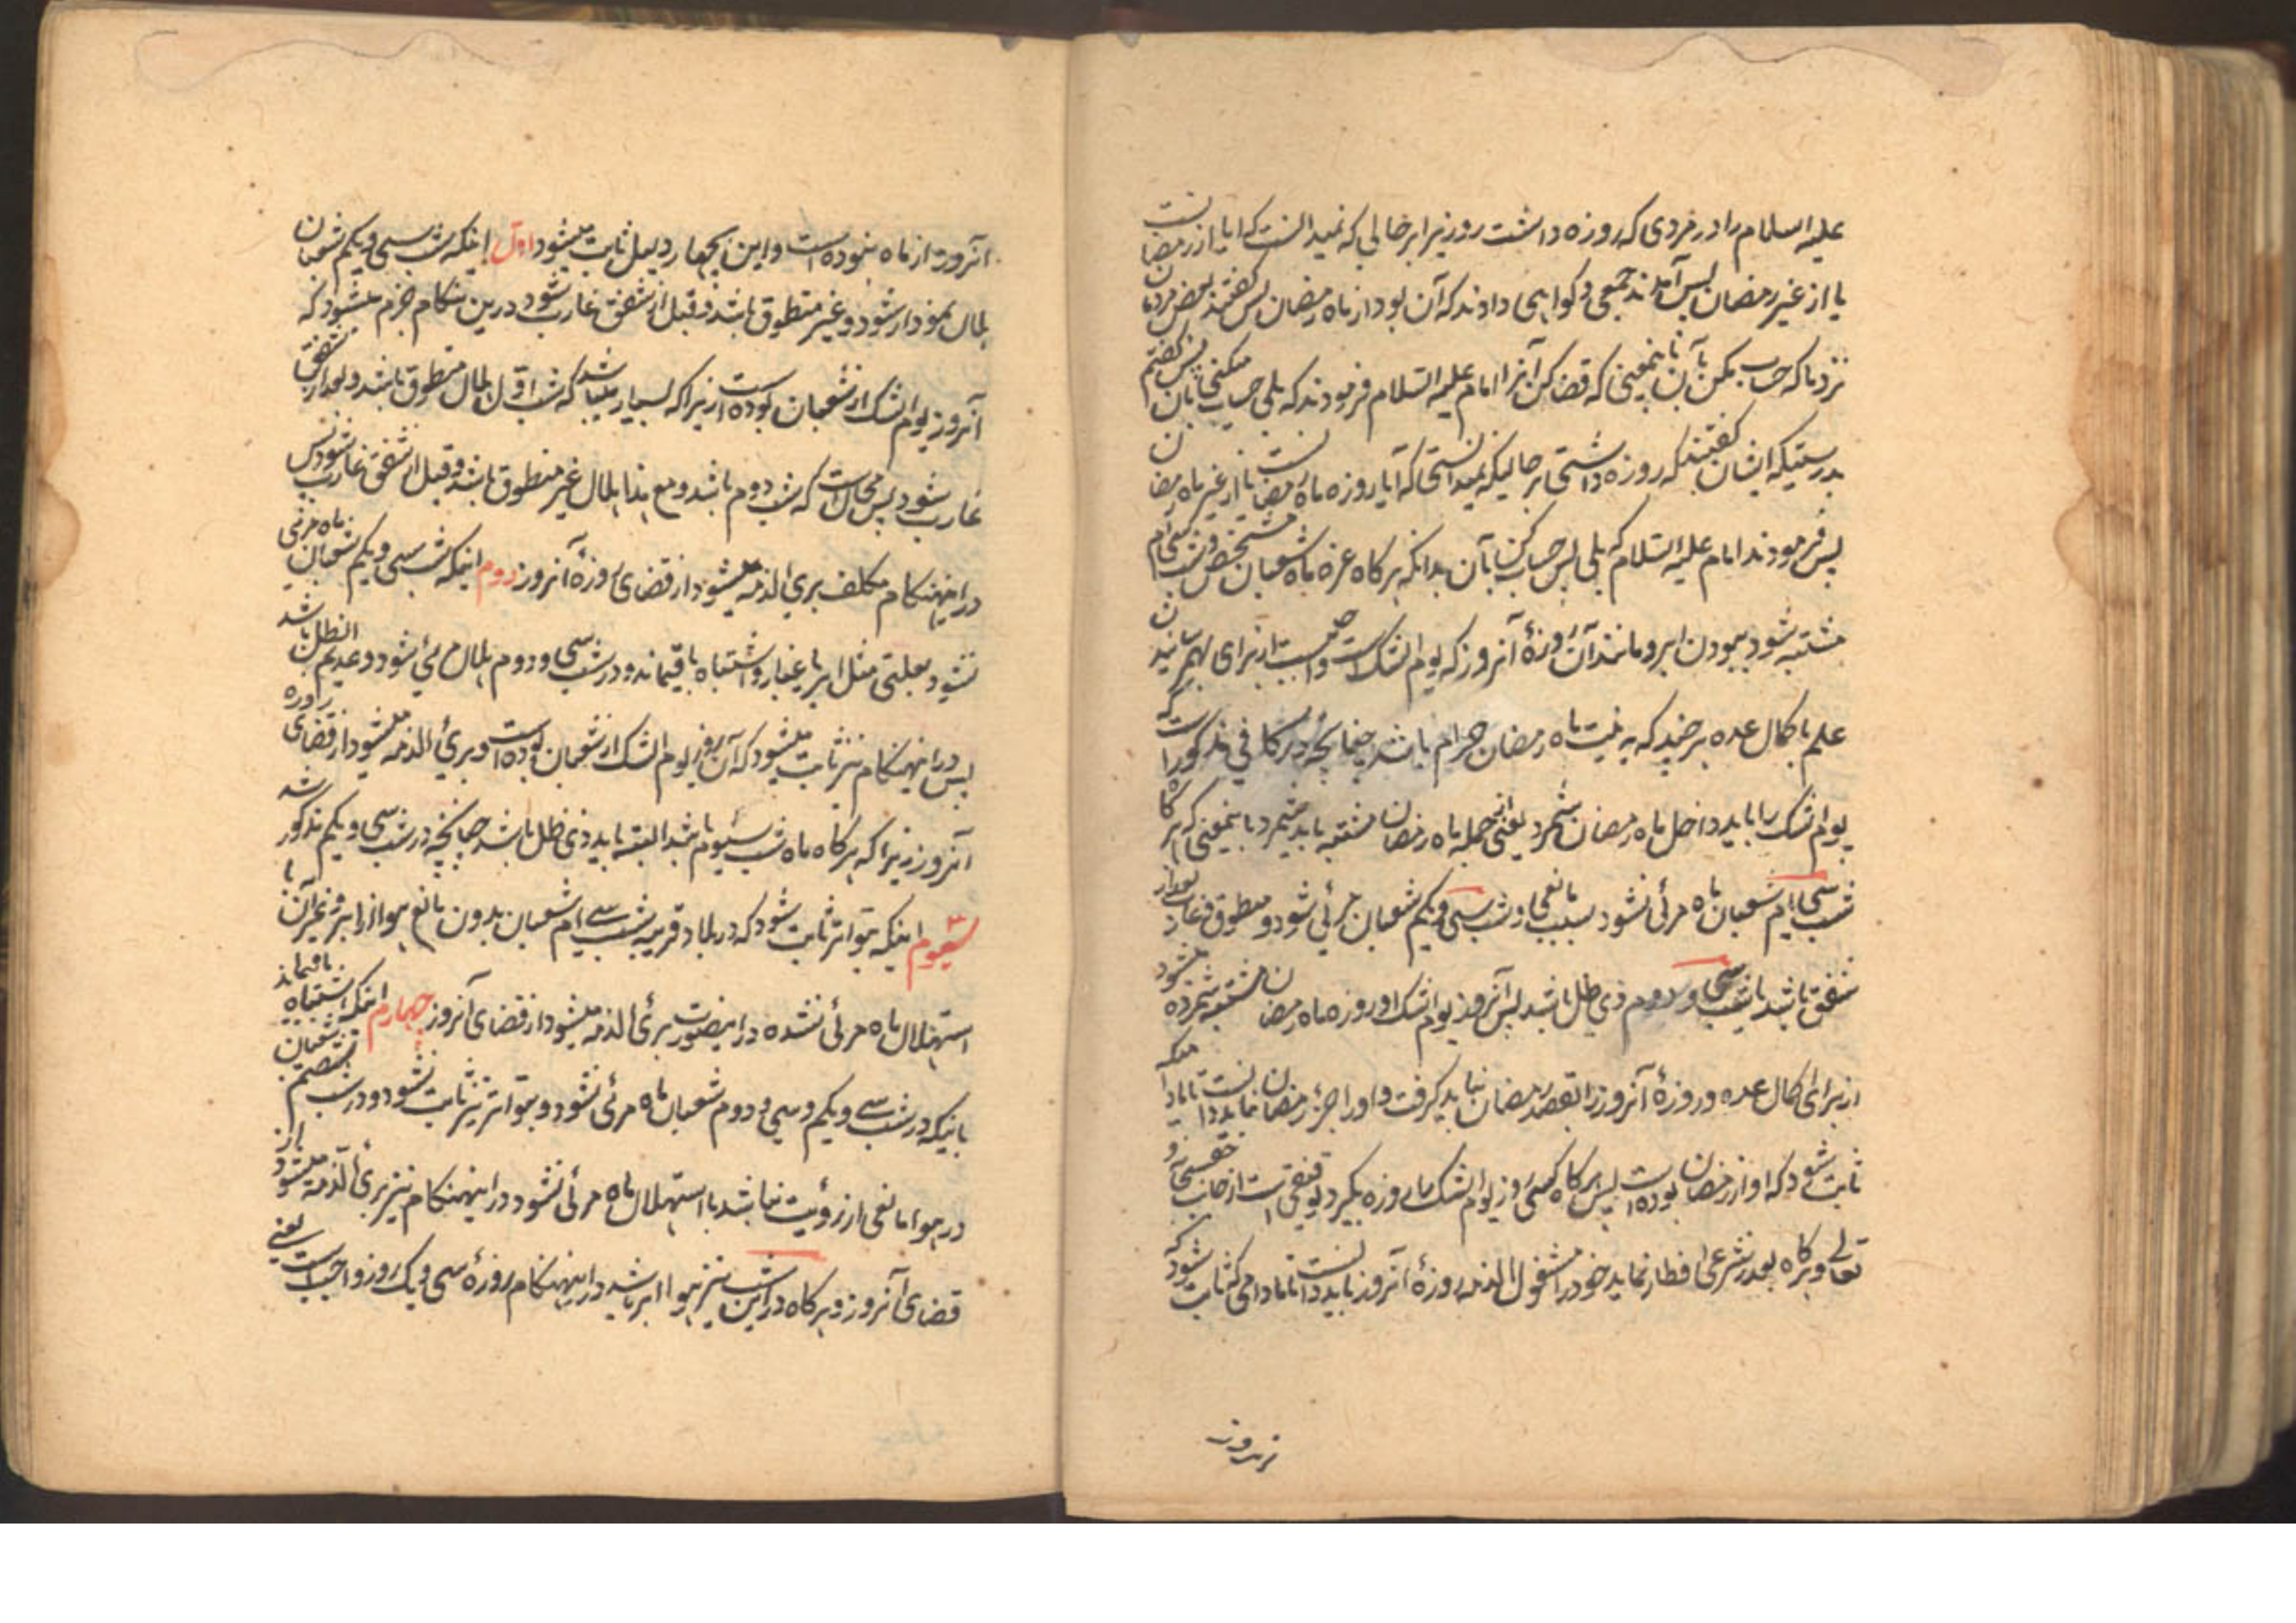 علیه السلام را در مردی که روزه داشت روزیرا بر حالی که نمیدانست که ایا از رمضانست
یا از غیر رمضان پس آمدند جمعی و کواهی دادند که آن بود از ماه رمضان پس کفتند بعض مردمان
نزد ما که حساب مکن بآن باینمعنی که قضا کن آنرا امام علیه السلام فرمودند که بلی حساب میکنی بآن پس کفتم
بدرستیکه ایشان کفتند که روزه داشتی بر حالیکه نمیدانستی که آیا روزه ماه رمضانست یا از غیر ماه رمضان
پس فرمودند امام علیه السلام که بلی پس حساب کن بآن بدانکه هر کاه غره ماه شعبان مشخص و شب سی ام
مشتبه شود ببودن ابر و مانند آن روزۀ آنروز که یوم الشک است واجبست از برای بهم رسانیدن
علم باکمال عده هر چند که به نیت ماه رمضان حرام باشد چنانچه در کافی مذکور است که
یوم الشک را باید داخل ماه رمضان شمرد یعنی از جمله ماه رمضان مشتبه باید شمرد باینمعنی که هر کاه
شب سی ام شعبان ماه مرئی نشود بسبب مانعی و شب سی و یکم شعبان مرئی شود و مطوق و غارب بعد از
شفق باشد یا شب سی و دوم ذی ظل باشد پس آنروز یوم الشک و روزه ماه رمضان مشتبه شمرده میشود
از برای اکمال عده و روزۀ آنروز را بقصد رمضان نباید کرفت و او را جزء رمضان نباید دانست تا مادامیکه
ثابت شود که او از رمضان بوده است پس هر کاه کسی روز یوم الشک را روزه بکیرد توفیقی است از جانب حقسبحانه و
تعالی و هر کاه بعذر شرعی افطار نماید خود را مشغول الذمه روزۀ آنروز باید دانست تا مادامی که ثابت شود که
نزروز
آنروز از ماه نبوده است و این بچهار دلیل ثابت میشود اول اینکه شب سی و یکم شعبان
هلال نمودار شود و غیر متطوق باشد و قبل از شفق غارب شود درین هنکام جزم میشود که
آنروز یوم الشک از شعبان بوده است از زیرا که بسیار میباشد که شب اول هلال متطوق باشد و بعد از شفق
غارب شود پس محال است که شب دوم باشد و مع هذا هلال غیر متطوق باشد و قبل از شفق غارب شود پس
در اینهنکام مکلف برئ الذمه میشود از قضای روزۀ آنروز دوم اینکه شب سی و یکم شعبان ماه مرئی
نشود بعلتی مثل ابر یا غبار و اشتباه باقیماند و در شب سی و دوم هلال مرئی شود و عدیم الظل باشد
پس در اینهنکام نیز ثابت میشود که آن روز یوم الشک از شعبان بوده است و برئ الذمه میشود از قضای روزه
آنروز زیرا که هر کاه ماه شب سیوم باشد البته باید ذی ظل باشد چنانچه در شب سی و یکم مذکور شد
سیوم اینکه بتواتر ثابت شود که در بلاد قریبه شب سی ام شعبان بدون مانع هوا از ابر و غیر آن با
استهلال ماه مرئی نشده در اینصورت برئ الذمه میشود از قضای آنروز چهارم اینکه اشتباه باقیماند
باینکه در شب سی و یکم و سی و دوم شعبان ماه مرئی نشود و بتواتر نیز ثابت نشود و در شب سیم شعبان
در هوا مانعی از رؤیت نباشد با استهلال ماه مرئی نشود در اینهنکام نیز برئ الذمه میشود از
قضای آنروز و هر کاه در این شب نیز هوا ابر باشد در اینهنکام روزۀ سی و یک روز واجب است یعنی